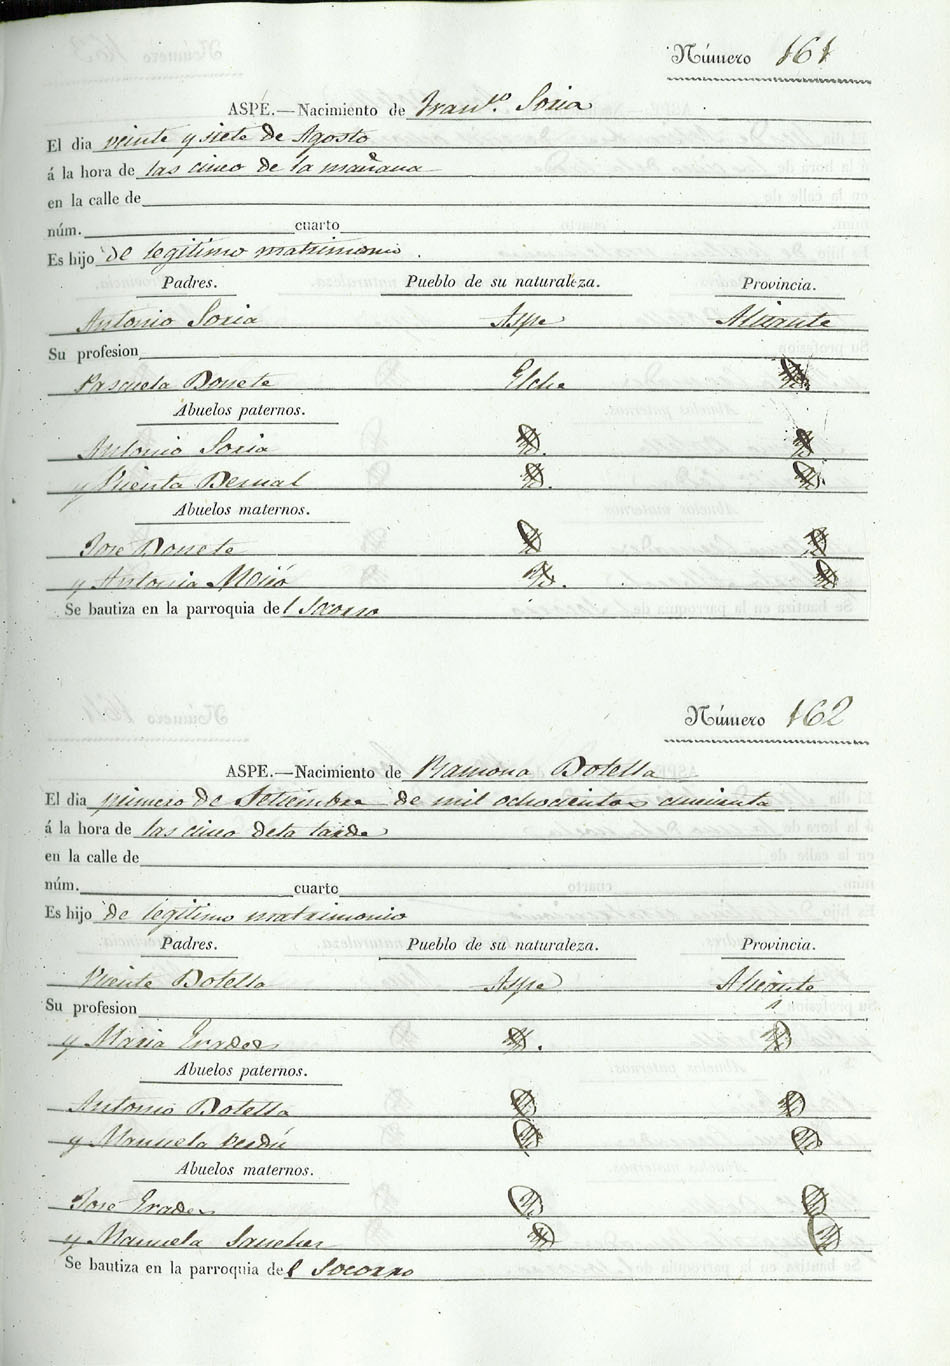 Número 161
ASPE.—Nacimiento de Fran.co Soria
El dia veinte y siete de Agosto
á la hora de las cinco de la mañana
en la calle de
núm. cuarto
Es hijo de legitimo matrimonio.
Padres. Pueblo de su naturaleza. Provincia.
Antonio Soria Aspe Alicante
Su profesion
Pascuela Bonete Elche
Abuelos paternos.
Antonio Soria
y Vicenta Bernal
Abuelos maternos.
José Bonete
y Antonia Miró
Se bautiza en la parroquia del Socorro
Número 162
ASPE.—Nacimiento de Ramona Botella
El dia primero de Setiembre de mil ochocientos cincuenta
á la hora de las cinco dela tarde
en la calle de
núm. cuarto
Es hijo de legitimo matrimonio
Padres. Pueblo de su naturaleza. Provincia.
Vicente Botella Aspe Alicante
Su profesion
y Maria Erades
Abuelos paternos.
Antonio Botella
y Manuela Verdú
Abuelos maternos.
José Erades
y Manuela Sanches
Se bautiza en la parroquia del Socorro